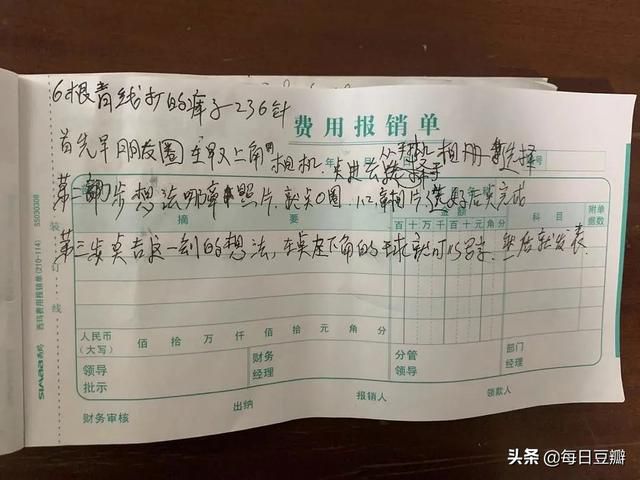 6根青线打的裤子—236针
费用报销单
首先早朋友圈 在
上角 相机 点进去 从手机相册 选择
第二步 想 法 照片，就点O圈， 相片选好后点完成
第三步点击这一刻的想法，在点左下角的 就可以写字，然后就发表.
摘 要
金额
百 十 万 千 百 十 元 角 分
科 目
附单据数
装 订 线
SS030308
西玛费用报销单(210-114)
SIMAA 西玛
人民币(大写) 佰 拾 万 仟 佰 拾 元 角 分
领导批示
财务经理
分管领导
部门经理
财务审核
出纳
报销人
领款人
头条 @每日豆瓣